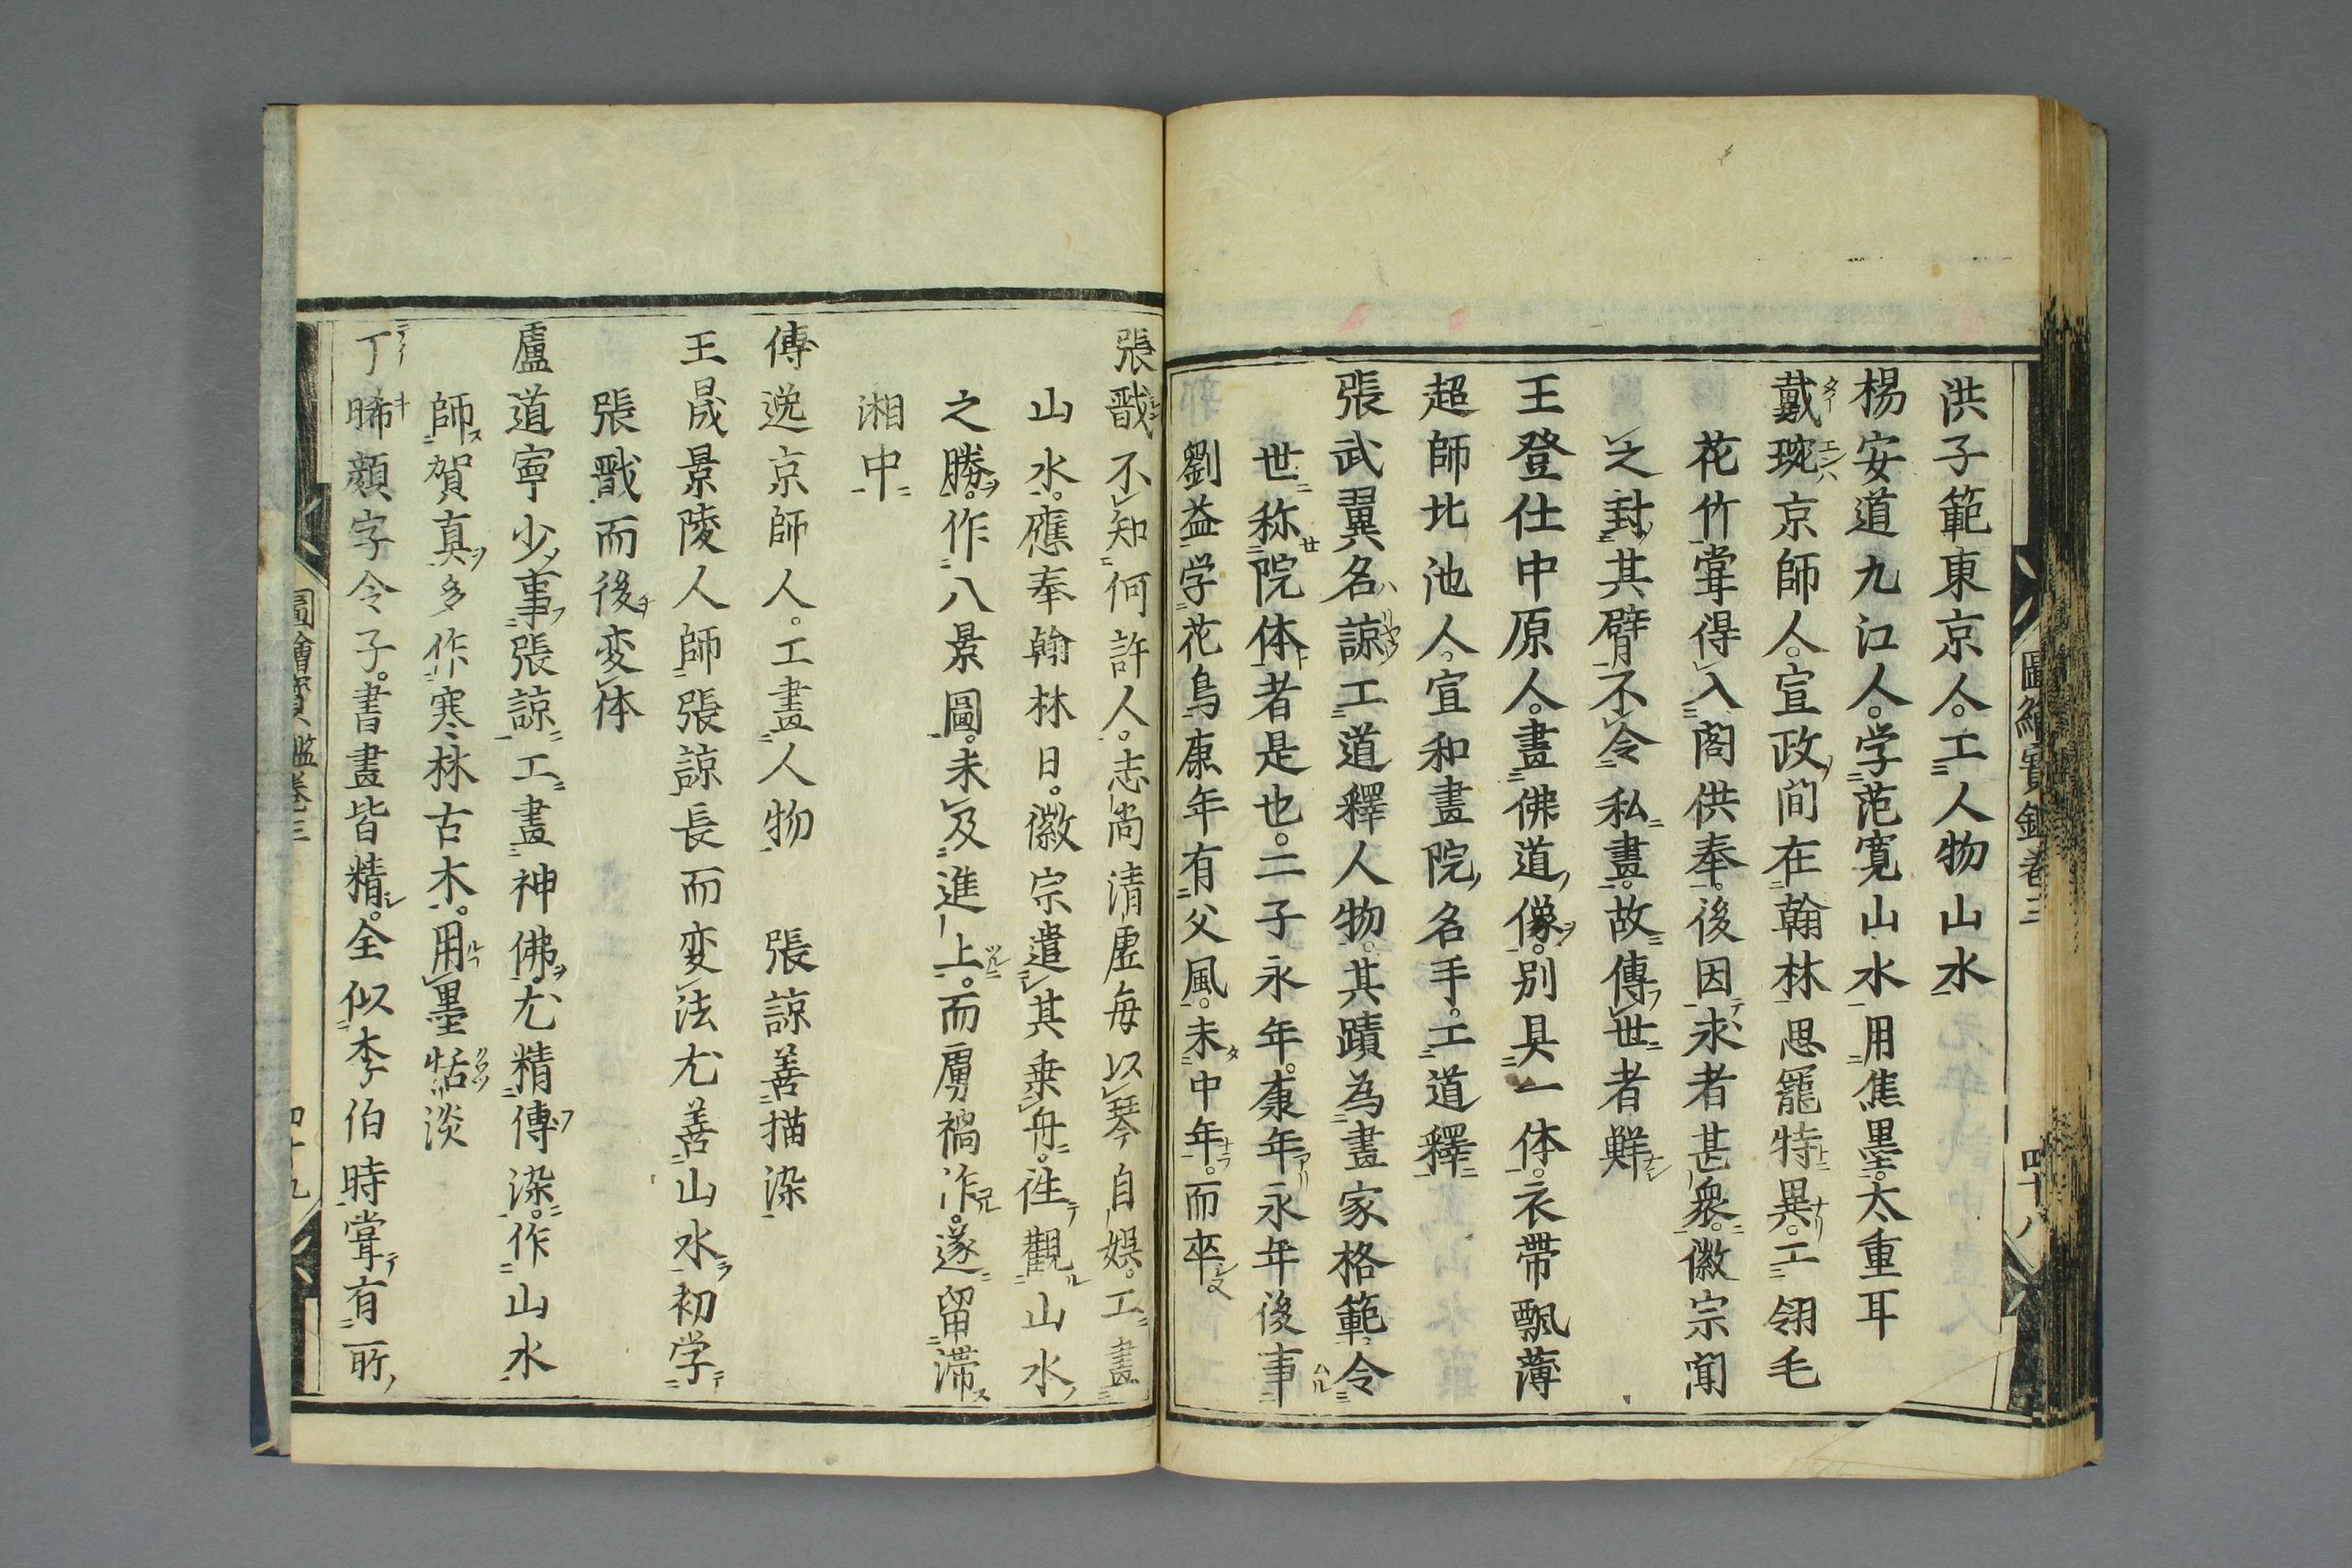 圖繪寳鑑卷三
四十八
洪子範東京人。工人物山水
楊安道九江人。学范寛山水用焦墨。太重耳
戴琬京師人。宣政間在翰林思寵特異。工翎毛
花竹甞得入閣供奉。後因求者甚衆。徽宗聞
之封其臂不令私畫。故傳世者鮮
王登仕中原人。畫佛道像。別具一体。衣帶飄薄
超師北池人。宣和畫院名手。工道釋
張武翼名諒工道釋人物。其蹟為畫家格範。令
世称院体者是也。二子永年。康年永年後事
劉益学花鳥康年有父風。未中年。而卒
張戩不知何許人。志尚清虚毎以琴自娯。工畫
山水。應奉翰林日。徽宗遣其乗舟。徃觀山水
之勝。作八景圖。未及進上。而虜禍作。遂留滯
湘中
傅逸京師人。工畫人物 張諒善描染
王晟景陵人師張諒長而変法尤善山水初学
張戩而後変体
盧道寧少事張諒工畫神佛。尤精傳染。作山水
師賀真多作寒林古木。用墨恬淡
丁晞顔字令子。書畫皆精。全似李伯時甞有所
圖繪寳鑑卷三
四十九